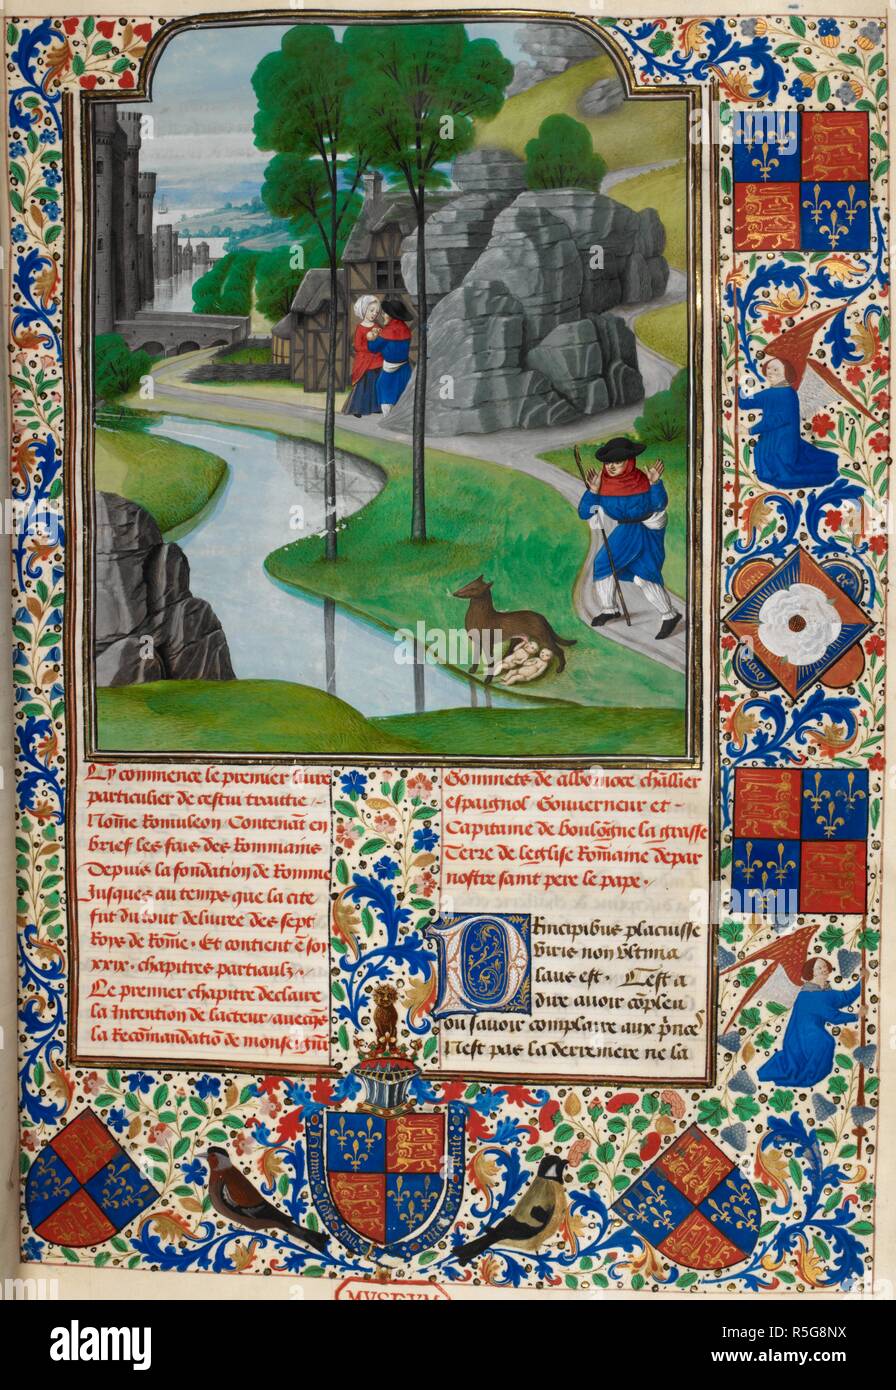 Cy commence le premier livre
particulier de cestui traittie
Nõme Romuleon. Contenãt en
brief les fais des Rommains
Depuis la fondation de Romme
Jusques au temps que la cite
fut du tout delivree des sept
Roys de Rõme. Et contient
xxix. chapitres partiaulx.
Le premier chapitre declaire
la Intention de lacteur
la Recõmandatiõ de monseigñr
Gommets de albornoce challier
espaignol. Gouverneur et
Capitaine de boulõgne la grasse
Terre de leglise Rõmaine depar
nostre saint pere le pape.
Principibus placuisse
viris non vltima
laus est. Cest a
dire avoir cõpleu
ou savoir complaire aux prĩce
Nest pas la derreniere ne la
dieu et
mon
MVSEVM
alamy
Image ID: R5G8NX
www.alamy.com